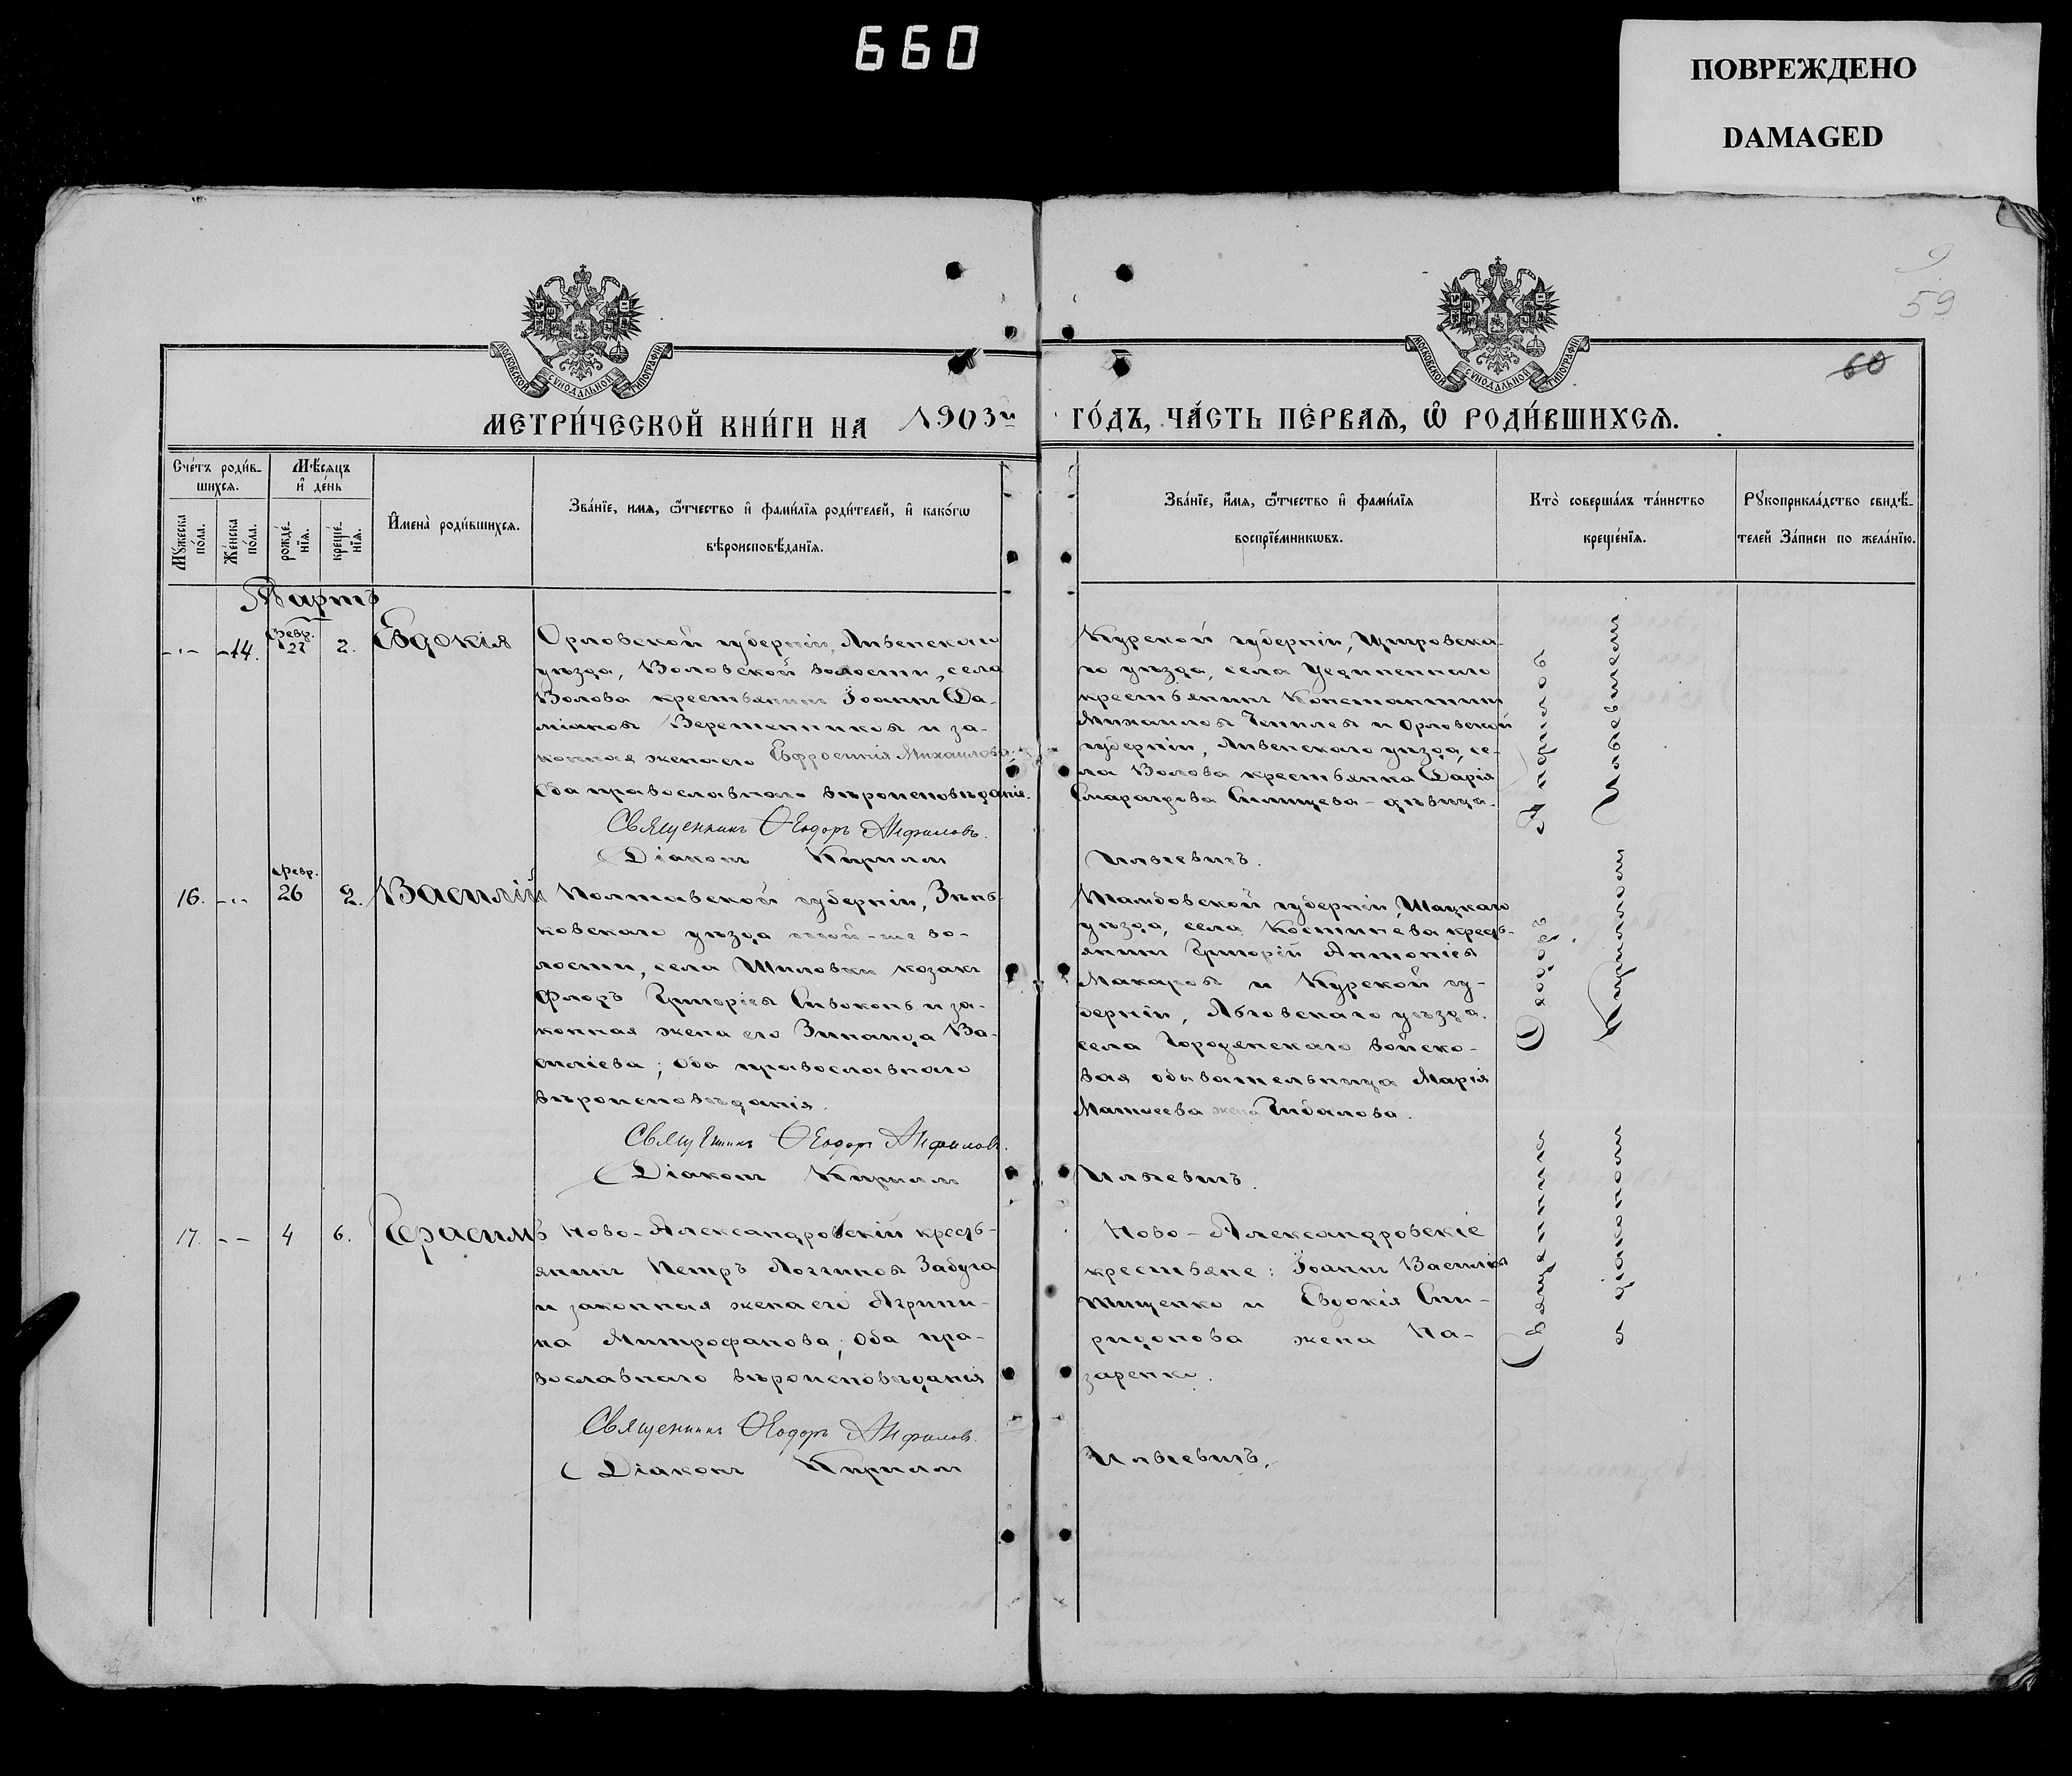 660
ПОВРЕЖДЕНО
DAMAGED
9
59
60
МОСКОВСКОЙ СѴНОДАЛЬНОЙ ТИПОГРАФІИ
МОСКОВСКОЙ СѴНОДАЛЬНОЙ ТИПОГРАФІИ
МЕТРИ́ЧЕСКОЙ КНИ́ГИ НА 1903й ГО́ДЪ, ЧА́СТЬ ПЕ́РВАѦ, Ѽ РОДИ́ВШИХСѦ.
Сче́тъ роди́в-
шихся.
Мѣ́сяцъ
и҆ де́нь
Мꙋ́жеска по́ла.
Же́нска по́ла.
рожде́-
нїя.
креще́-
нїя.
И҆мена̀ роди́вшихся.
Зва́нїе, имя, ѻ҆́тчество и҆ фами́лїя роди́телей, и҆ како́гѡ
вѣроисповѣ́данїя.
Зва́нїе, и҆́мя, ѻ҆́тчество и҆ фами́лїя
воспрїе́мникѡвъ.
Кто̀ соверша́лъ та́инство
креще́нїя.
Рꙋкоприкла́дство свидѣ́-
телей За́писи по жела́нїю.
Мартъ
14. Февр. 27 2. Евдокія
Орловской губерніи, Ливенскаго
уѣзда, Воловской волости, села
Волова крестьянинъ Іоаннъ Да-
міановъ Веретенниковъ и за-
конная жена его Евфросинія Михаилова;
Оба православнаго вѣроисповѣданія.
Священникъ Ѳеодоръ Анфиловъ.
Діаконъ Кириллъ
Курской губерніи, Щигровска-
го уѣзда, села Уединеннаго
крестьянинъ Константинъ
Михаиловъ Чепилевъ и Орловской
губерніи, Ливенскаго уѣзда, се-
ла Волова крестьянка Дарія
Смарагдова Силищева - дѣвица.
Ильевичъ.
16. Февр. 26 2. Василій
Полтавской губерніи, Зѣнь-
ковскаго уѣзда той-же во-
лости, села Шиловки козакъ
Флоръ Григоріевъ Сивоконь и за-
конная жена его Зинаида Ва-
силіева; Оба православнаго
вѣроисповѣданія.
Священникъ Ѳеодоръ Анфиловъ.
Діаконъ Кириллъ
Тамбовской губерніи, Шацкаго
уѣзда, села Костинева кресть-
янинъ Григорій Антоніевъ
Макаровъ и Курской гу-
берніи, Льговскаго уѣзда.
села Городенскаго войско-
вая обывательница Марія
Матѳеева жена Гибалова.
Ильевичъ.
17. 4 6. Герасимъ
Ново-Александровскій кресть-
янинъ Петръ Логгиновъ Забуга
и законная жена его Агрипи-
на Митрофанова; Оба пра-
вославнаго вѣроисповѣданія
Священникъ Ѳеодоръ Анфиловъ.
Діаконъ Кириллъ
Ново-Александровскіе
крестьяне: Іоаннъ Василіевъ
Тищенко и Евдокія Спи-
ридонова жена На-
заренко.
Ильевичъ.
Священникъ Ѳеодоръ Анфиловъ
съ діакономъ Кирилломъ Ильевичемъ